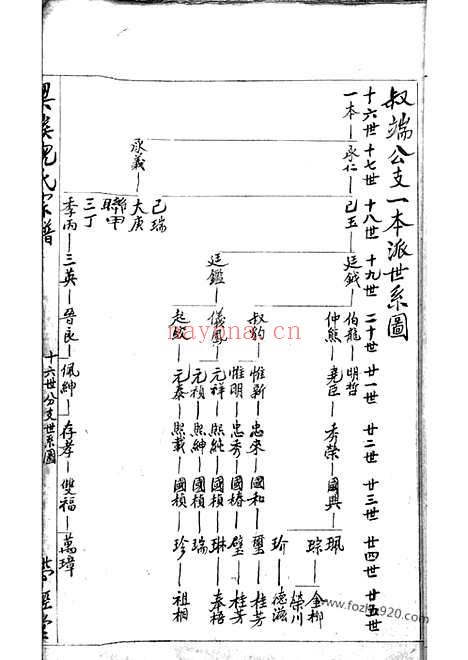 叔端公支一本派世系圖
十六世 十七世 十八世 十九世 二十世 廿一世 廿二世 廿三世 廿四世 廿五世
一本 承仁 已玉 廷鉞 伯龍 明哲
仲熊 堯臣 秀榮 國興 珮
琮 金柳
榮川
玠 德滋
叔豹 惟新 忠來 國和 璽 桂芳
惟明 忠秀 國椿 璧 桂芳
廷鑑 儀鳳 元祥 熙純 國楨 琳 奉梧
元禎 熙紳 國楨 瑞
起 元泰 熙載 國楨 珍 祖桐
承義 已瑞
大庚
聯甲
三丁
季丙 三英 晉良 佩紳 存孝 雙福 萬璋
氏宗譜
十六世分支世系圖
nayona.cn
www.fozhu920.com